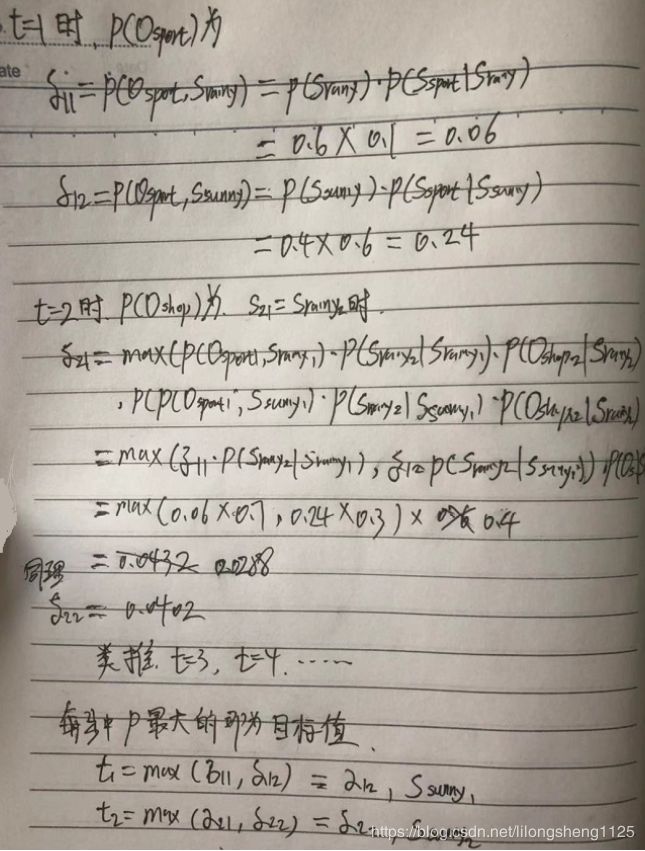 t=1 时, P(Osport) 为
ate
δ11 = P(Osport, Srainy) = P(Srainy)·P(Ssport|Srainy)
= 0.6 × 0.1 = 0.06
δ12 = P(Osport, Ssunny) = P(Ssunny)·P(Ssport|Ssunny)
= 0.4 × 0.6 = 0.24
t=2 时 P(Oshop) 为. S21 = Srainy2 时.
δ21 = max(P(Osport1, Srainy1)·P(Srainy2|Srainy1)·P(Oshop2|Srainy2)
, P(P(Osport1, Ssunny1)·P(Srainy2|Ssunny1)·P(Oshop2|Srainy2)
= max(δ11·P(Srainy2|Srainy1), δ12 P(Srainy2|Ssunny1)) P(Os|S
= max(0.06 × 0.7, 0.24 × 0.3) × 0.4
= 0.0432 0.0288
同理
δ22 = 0.0402
类推. t=3, t=4. ……
每步中 P 最大的即为目标值.
t1 = max(δ11, δ12) = δ12, Ssunny1
t2 = max(δ21, δ22) = δ22, Ssunny2
https://blog.csdn.net/lilongsheng1125